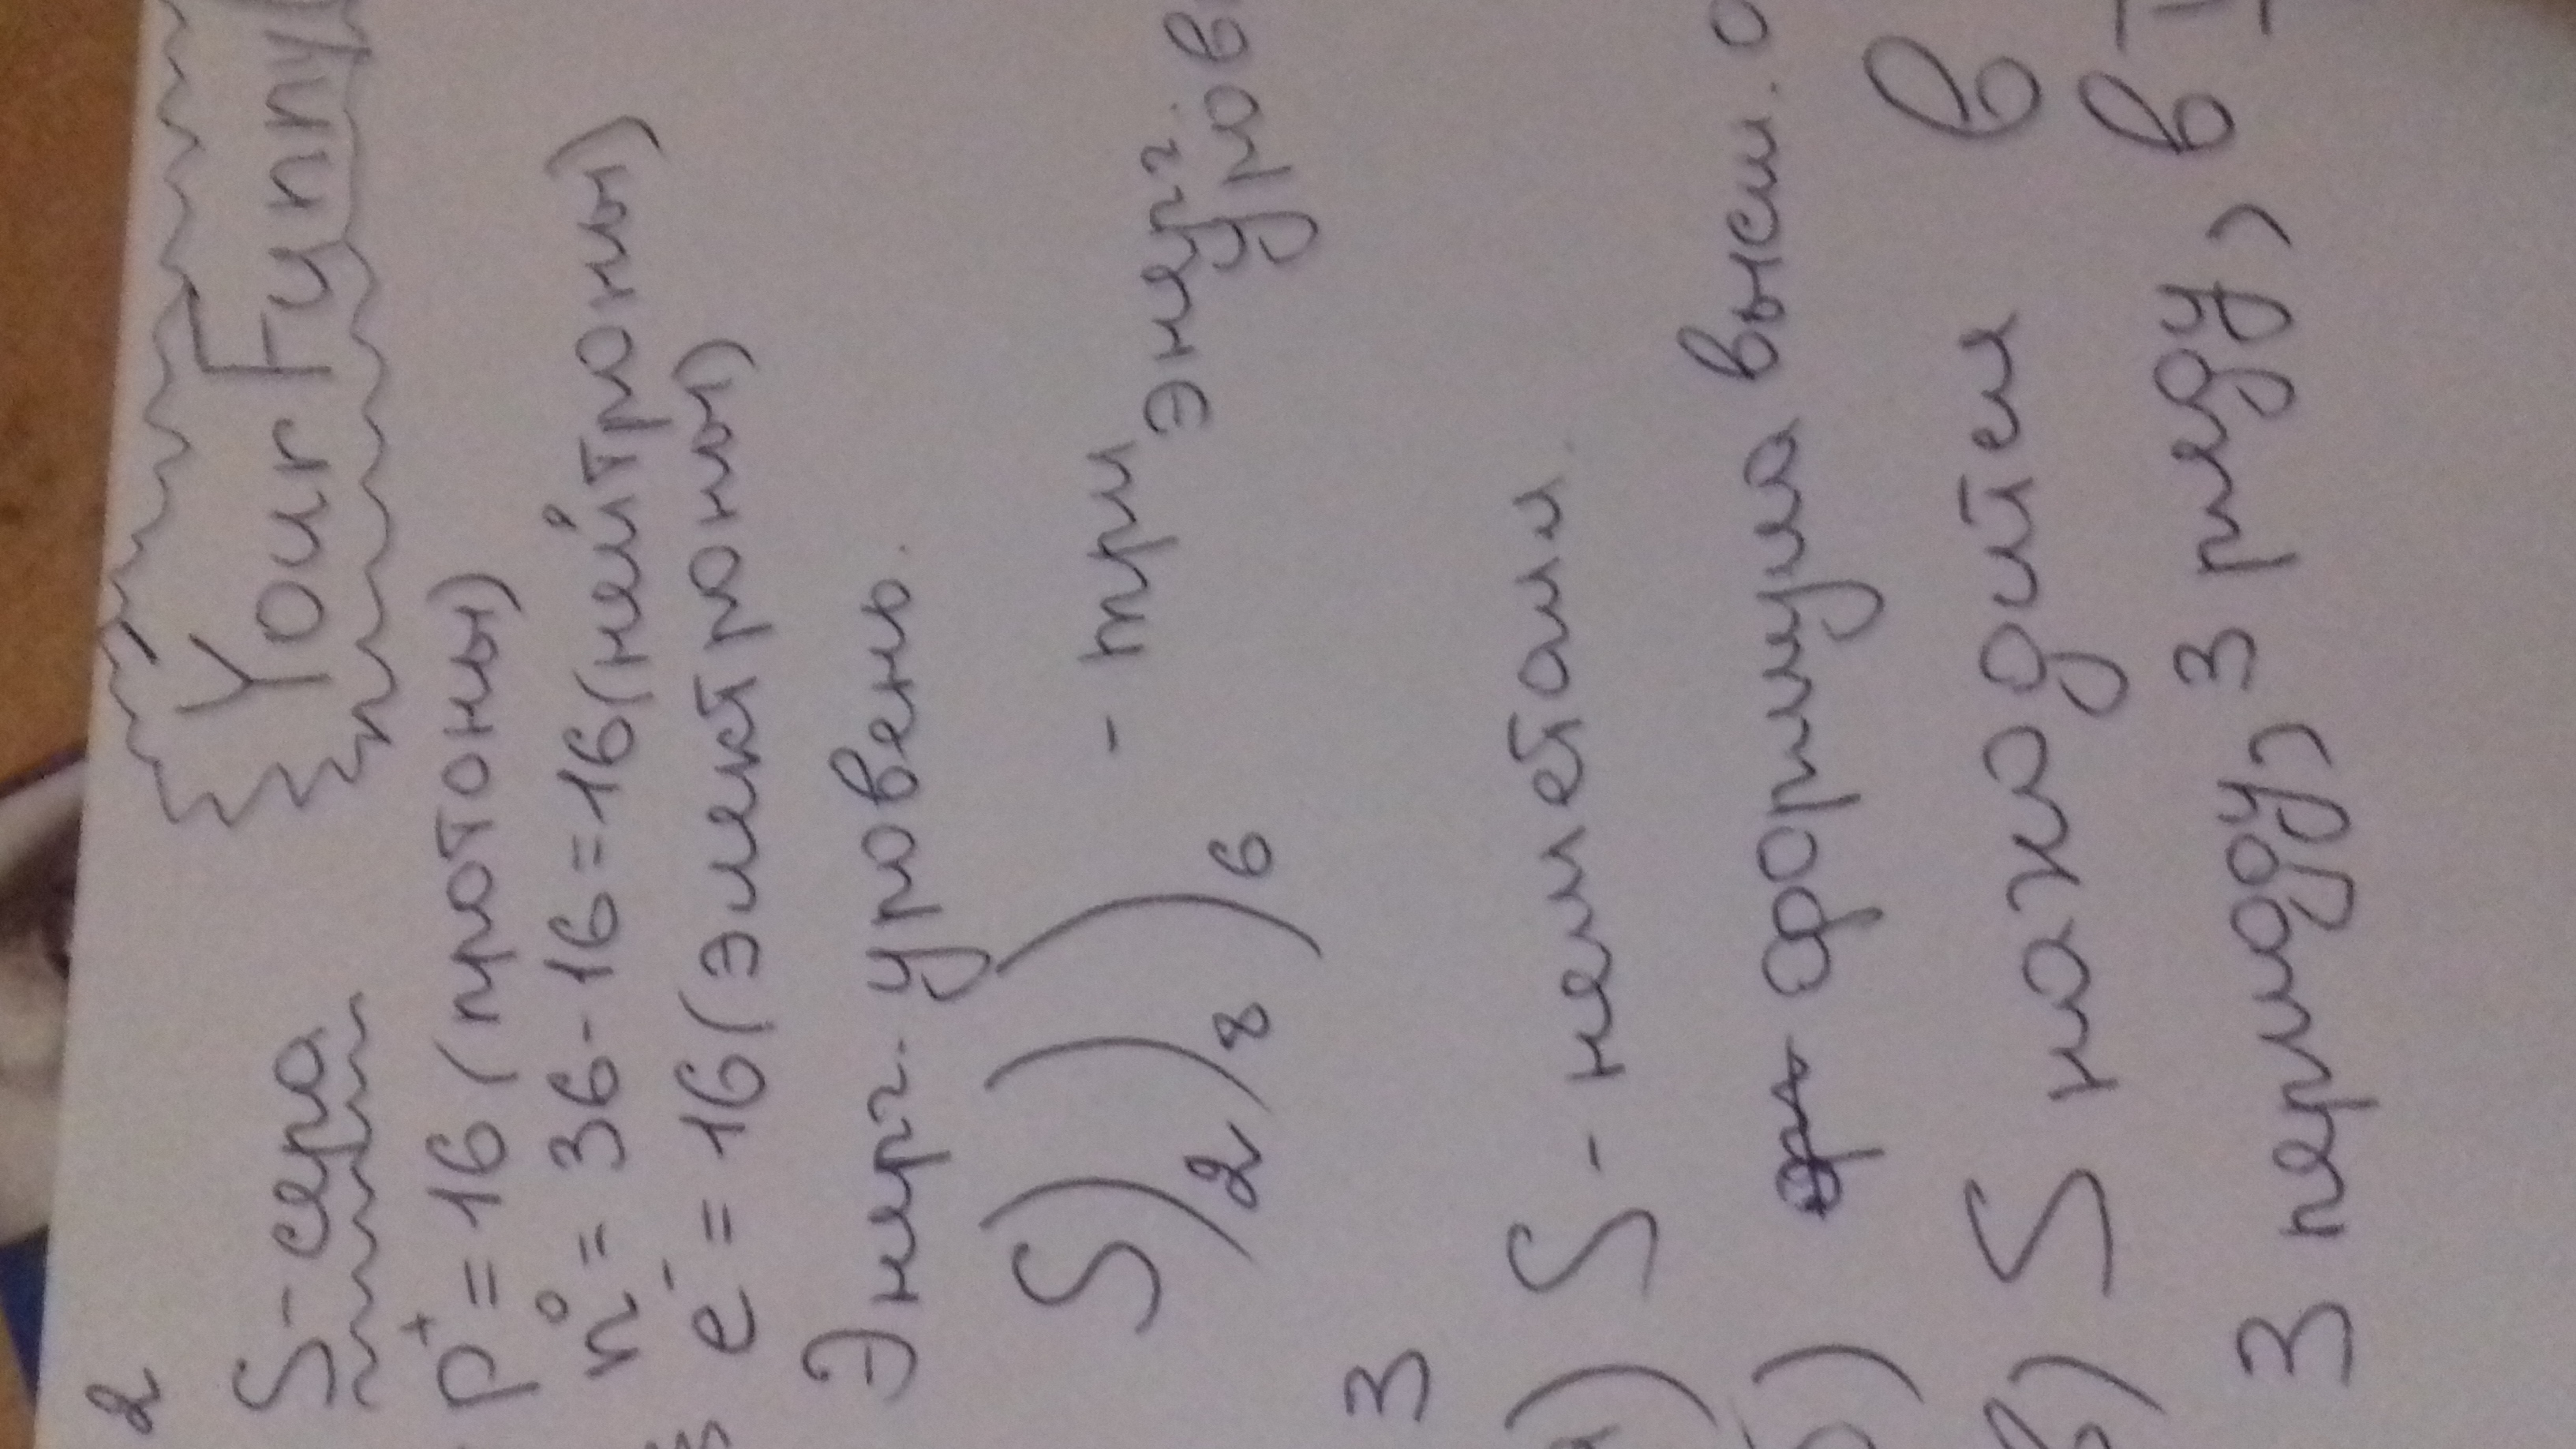 2
YourFynny
S-сера
p⁺=16(протоны)
n⁰=36-16=16(нейтроны)
e⁻=16(электроны)
Энерг. уровень.
S)₂)₈)₆ - три энерг.
уров
3
S-неметалл.
формула высш. о
в) S находится в
3 периоду, 3 ряду, в